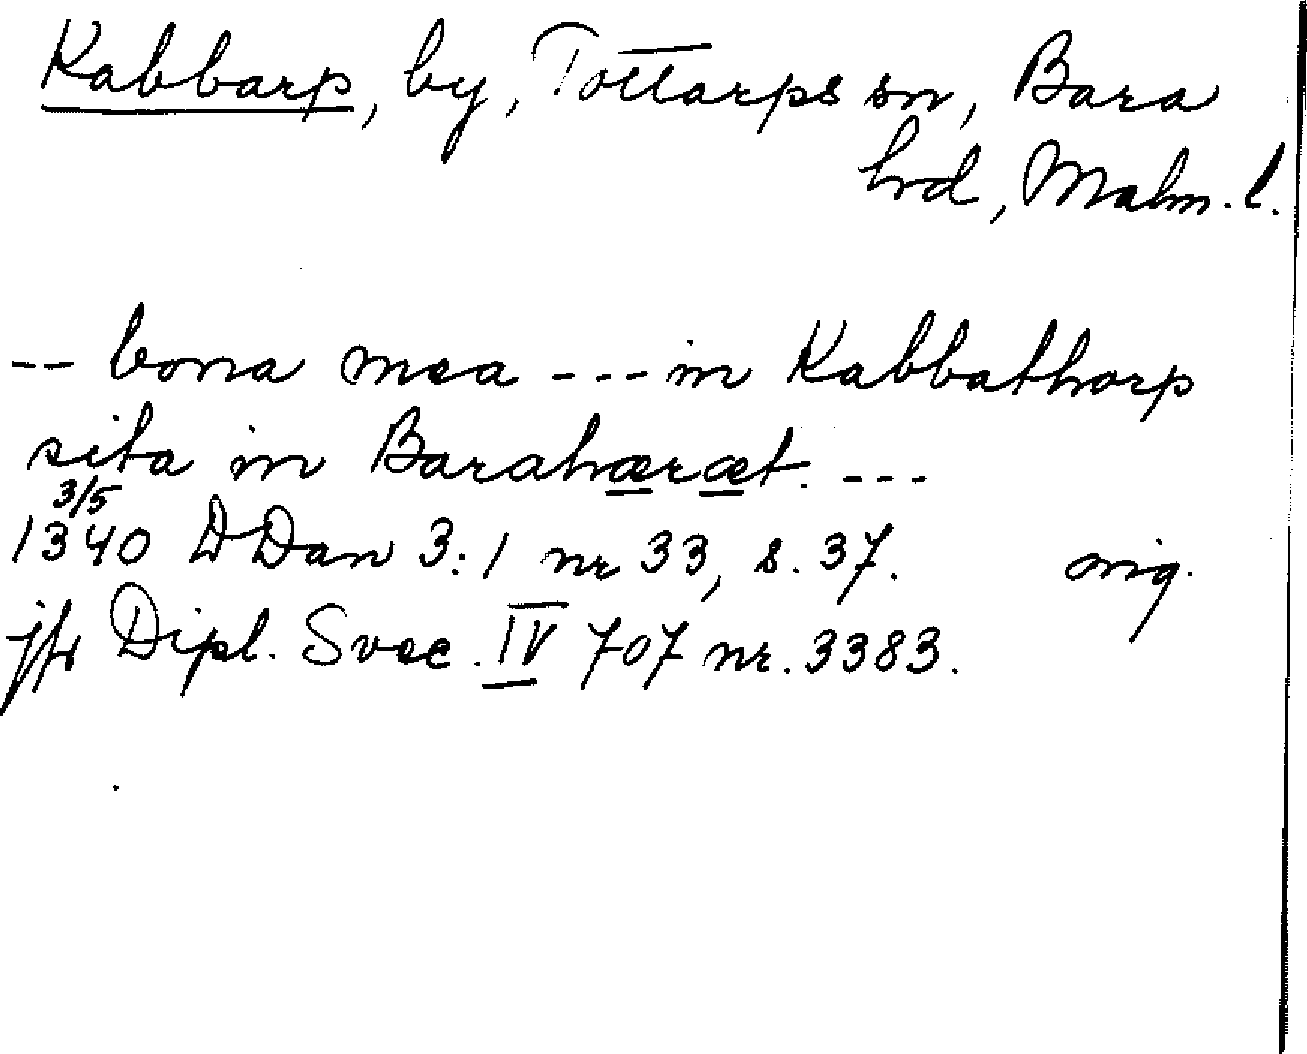 Kabbarp, by, Tottarps sn, Bara
hrd, Malm. l.
-- bona mea --- in Kabbathorp
sita in Barahæræt. ---
3/5
1340 DDan 3:1 nr 33, s. 37. orig.
jfr Dipl. Svec. IV 707 nr. 3383.